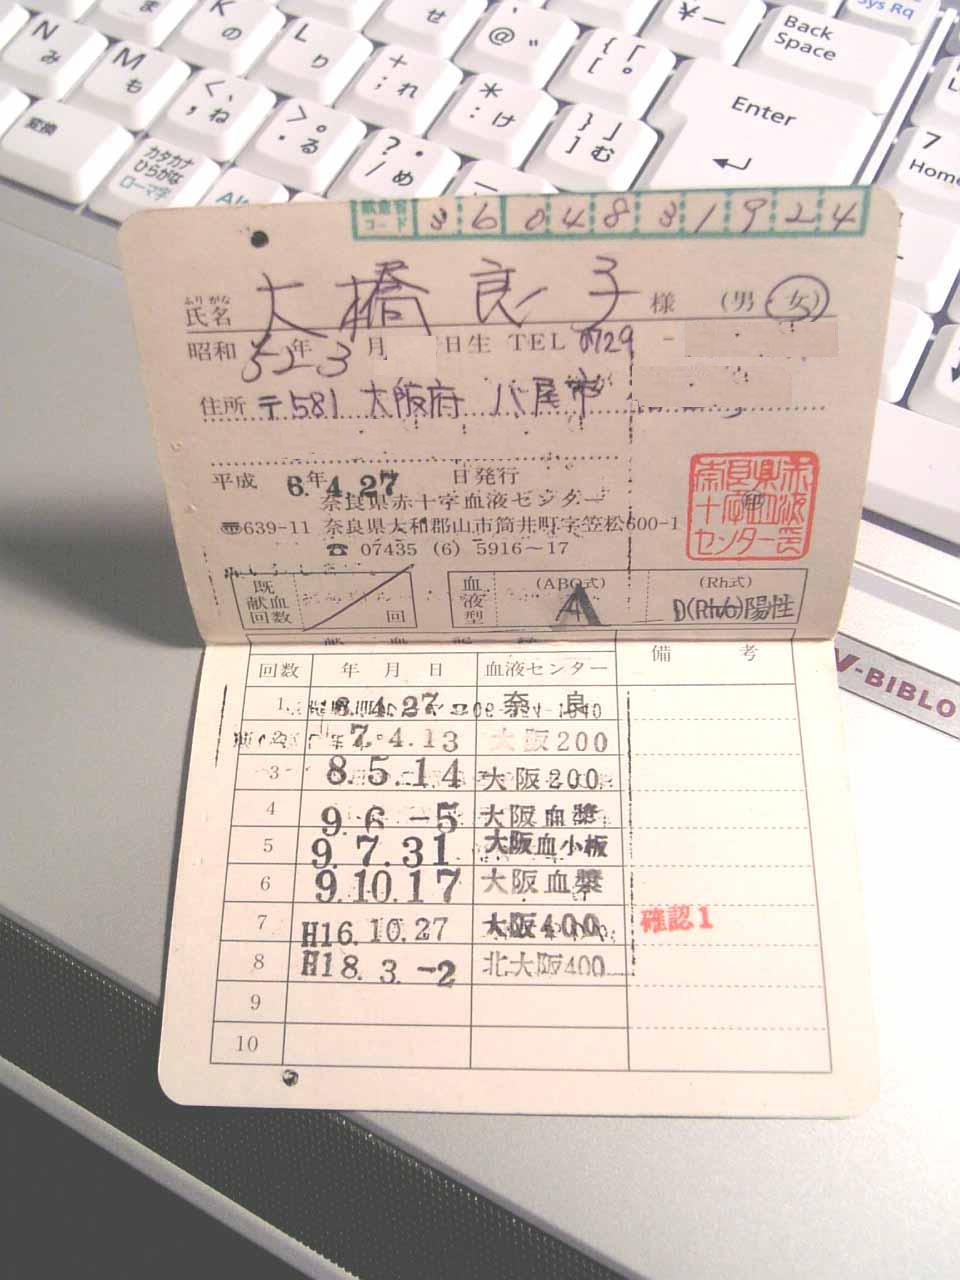 せ
Sys Rq
N み
K の
L り
@ 、 "
{ 「 [ 。
￥ー
Back Space
M も
< 、 , ね
> 。 . る
+ ; れ
* : け
} 」 ] む
Enter
7 Home
変換
カタカナ ひらがな ローマ字
Alt
? ・ / め
献血者コード 3604831924
ふりがな
氏名 大橋 良子 様 (男 女)
昭和 52年 3月 日生 TEL 0729 -
住所 〒581 大阪府 八尾市
平成 6年 4.27 日発行
奈良県赤十字血液センター
〒639-11 奈良県大和郡山市筒井町字笠松600-1
☎ 07435 (6) 5916～17
奈良県赤十字血液センター
既献血回数 回
血液型 (ABO式) A (Rh式) D(Rho)陽性
回数 年 月 日 血液センター 備 考
1 6.4.27 奈 良
2 7.4.13 大阪200
3 8.5.14 大阪200
4 9.6.-5 大阪血漿
5 9.7.31 大阪血小板
6 9.10.17 大阪血漿
7 H16.10.27 大阪400 確認1
8 H18.3.-2 北大阪400
9
10
V-BIBLO